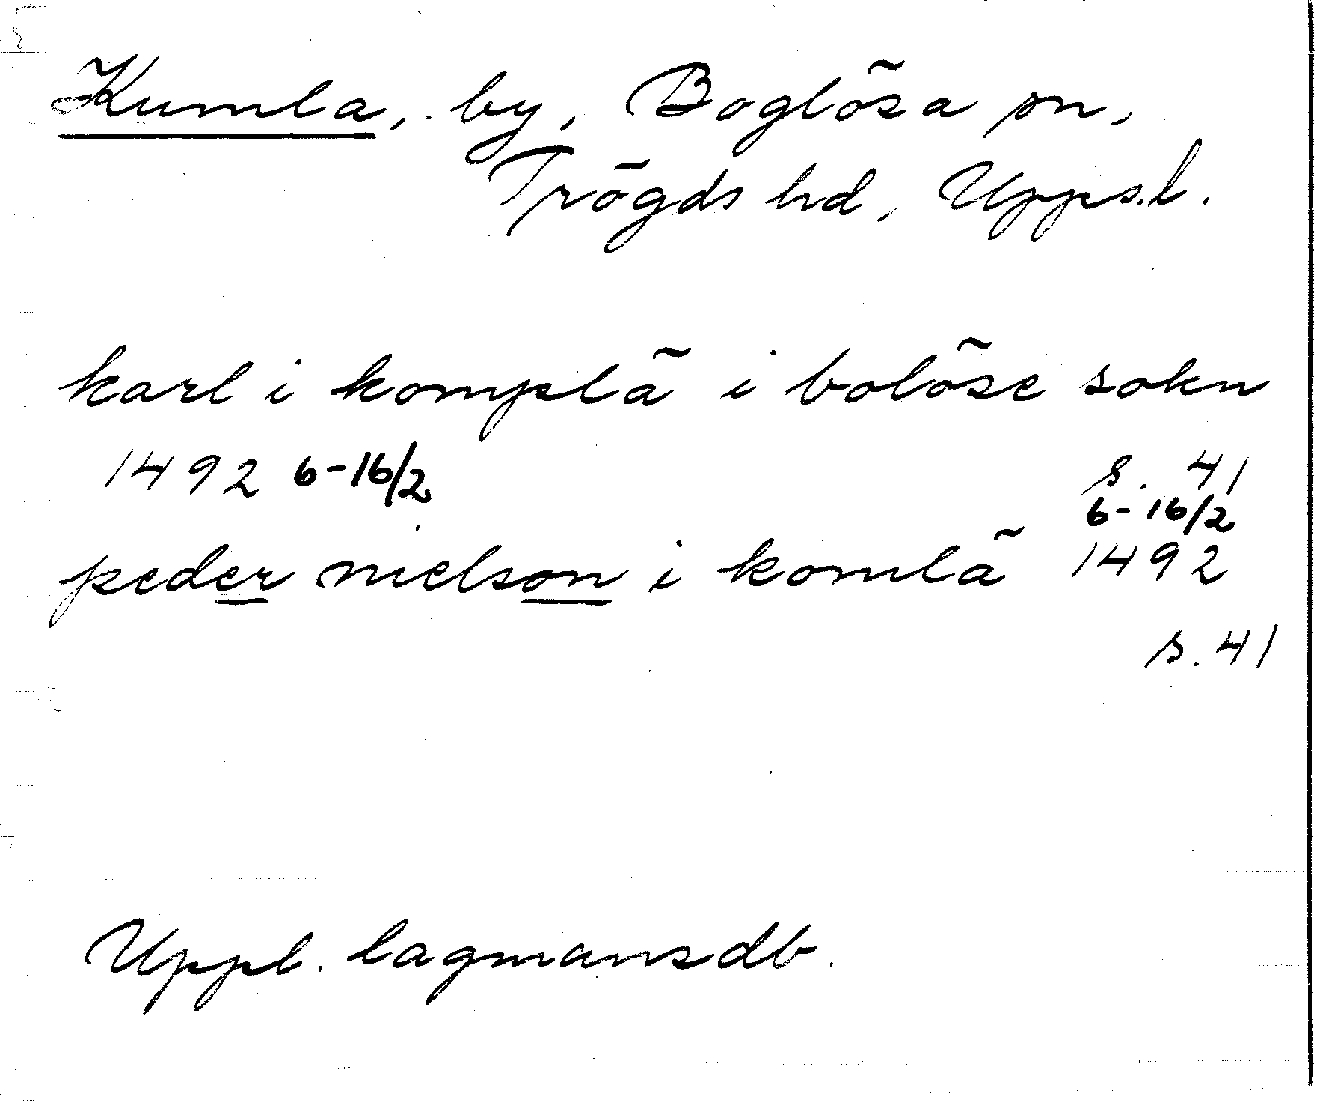 Kumla, by, Boglösa sn,
Trögds hd, Upps.l.
karl i komplä i bolöse sokn
1492 6-16/2 s. 41
6-16/2
peder nielson i komlä 1492
s. 41
Uppl. lagmansdb.